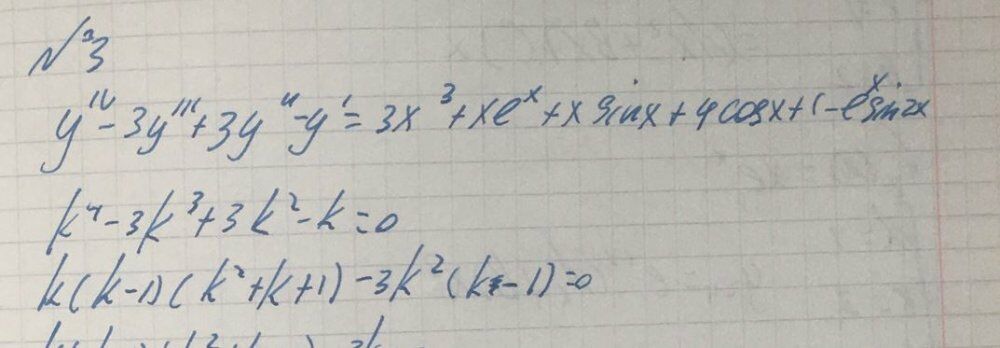 №3
y^IV - 3y''' + 3y'' - y' = 3x^3 + xe^x + x sinx + 4cosx + 1 - e^x sin2x
k^4 - 3k^3 + 3k^2 - k = 0
k(k-1)(k^2+k+1) - 3k^2(k-1) = 0